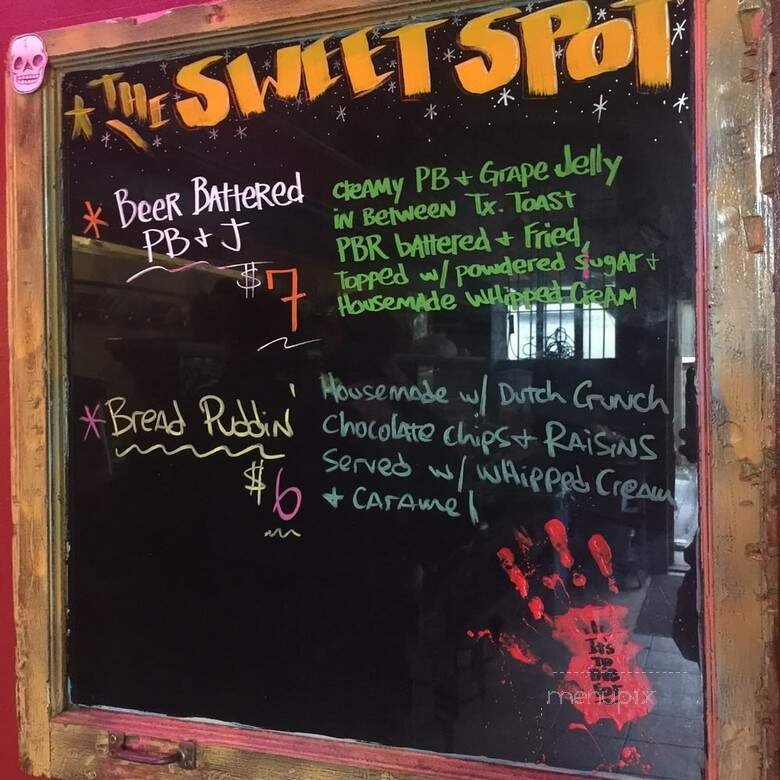 THE SWEET SPOT
* Beer Battered
PB + J
$7
Creamy PB + Grape Jelly
in Between Tx. Toast
PBR battered + Fried,
Topped w/ powdered Sugar +
Housemade Whipped Cream
* Bread Puddin'
$6
Housemade w/ Dutch Crunch
Chocolate Chips + Raisins
Served w/ Whipped Cream
+ Caramel
It's
To
Die
For
menupix